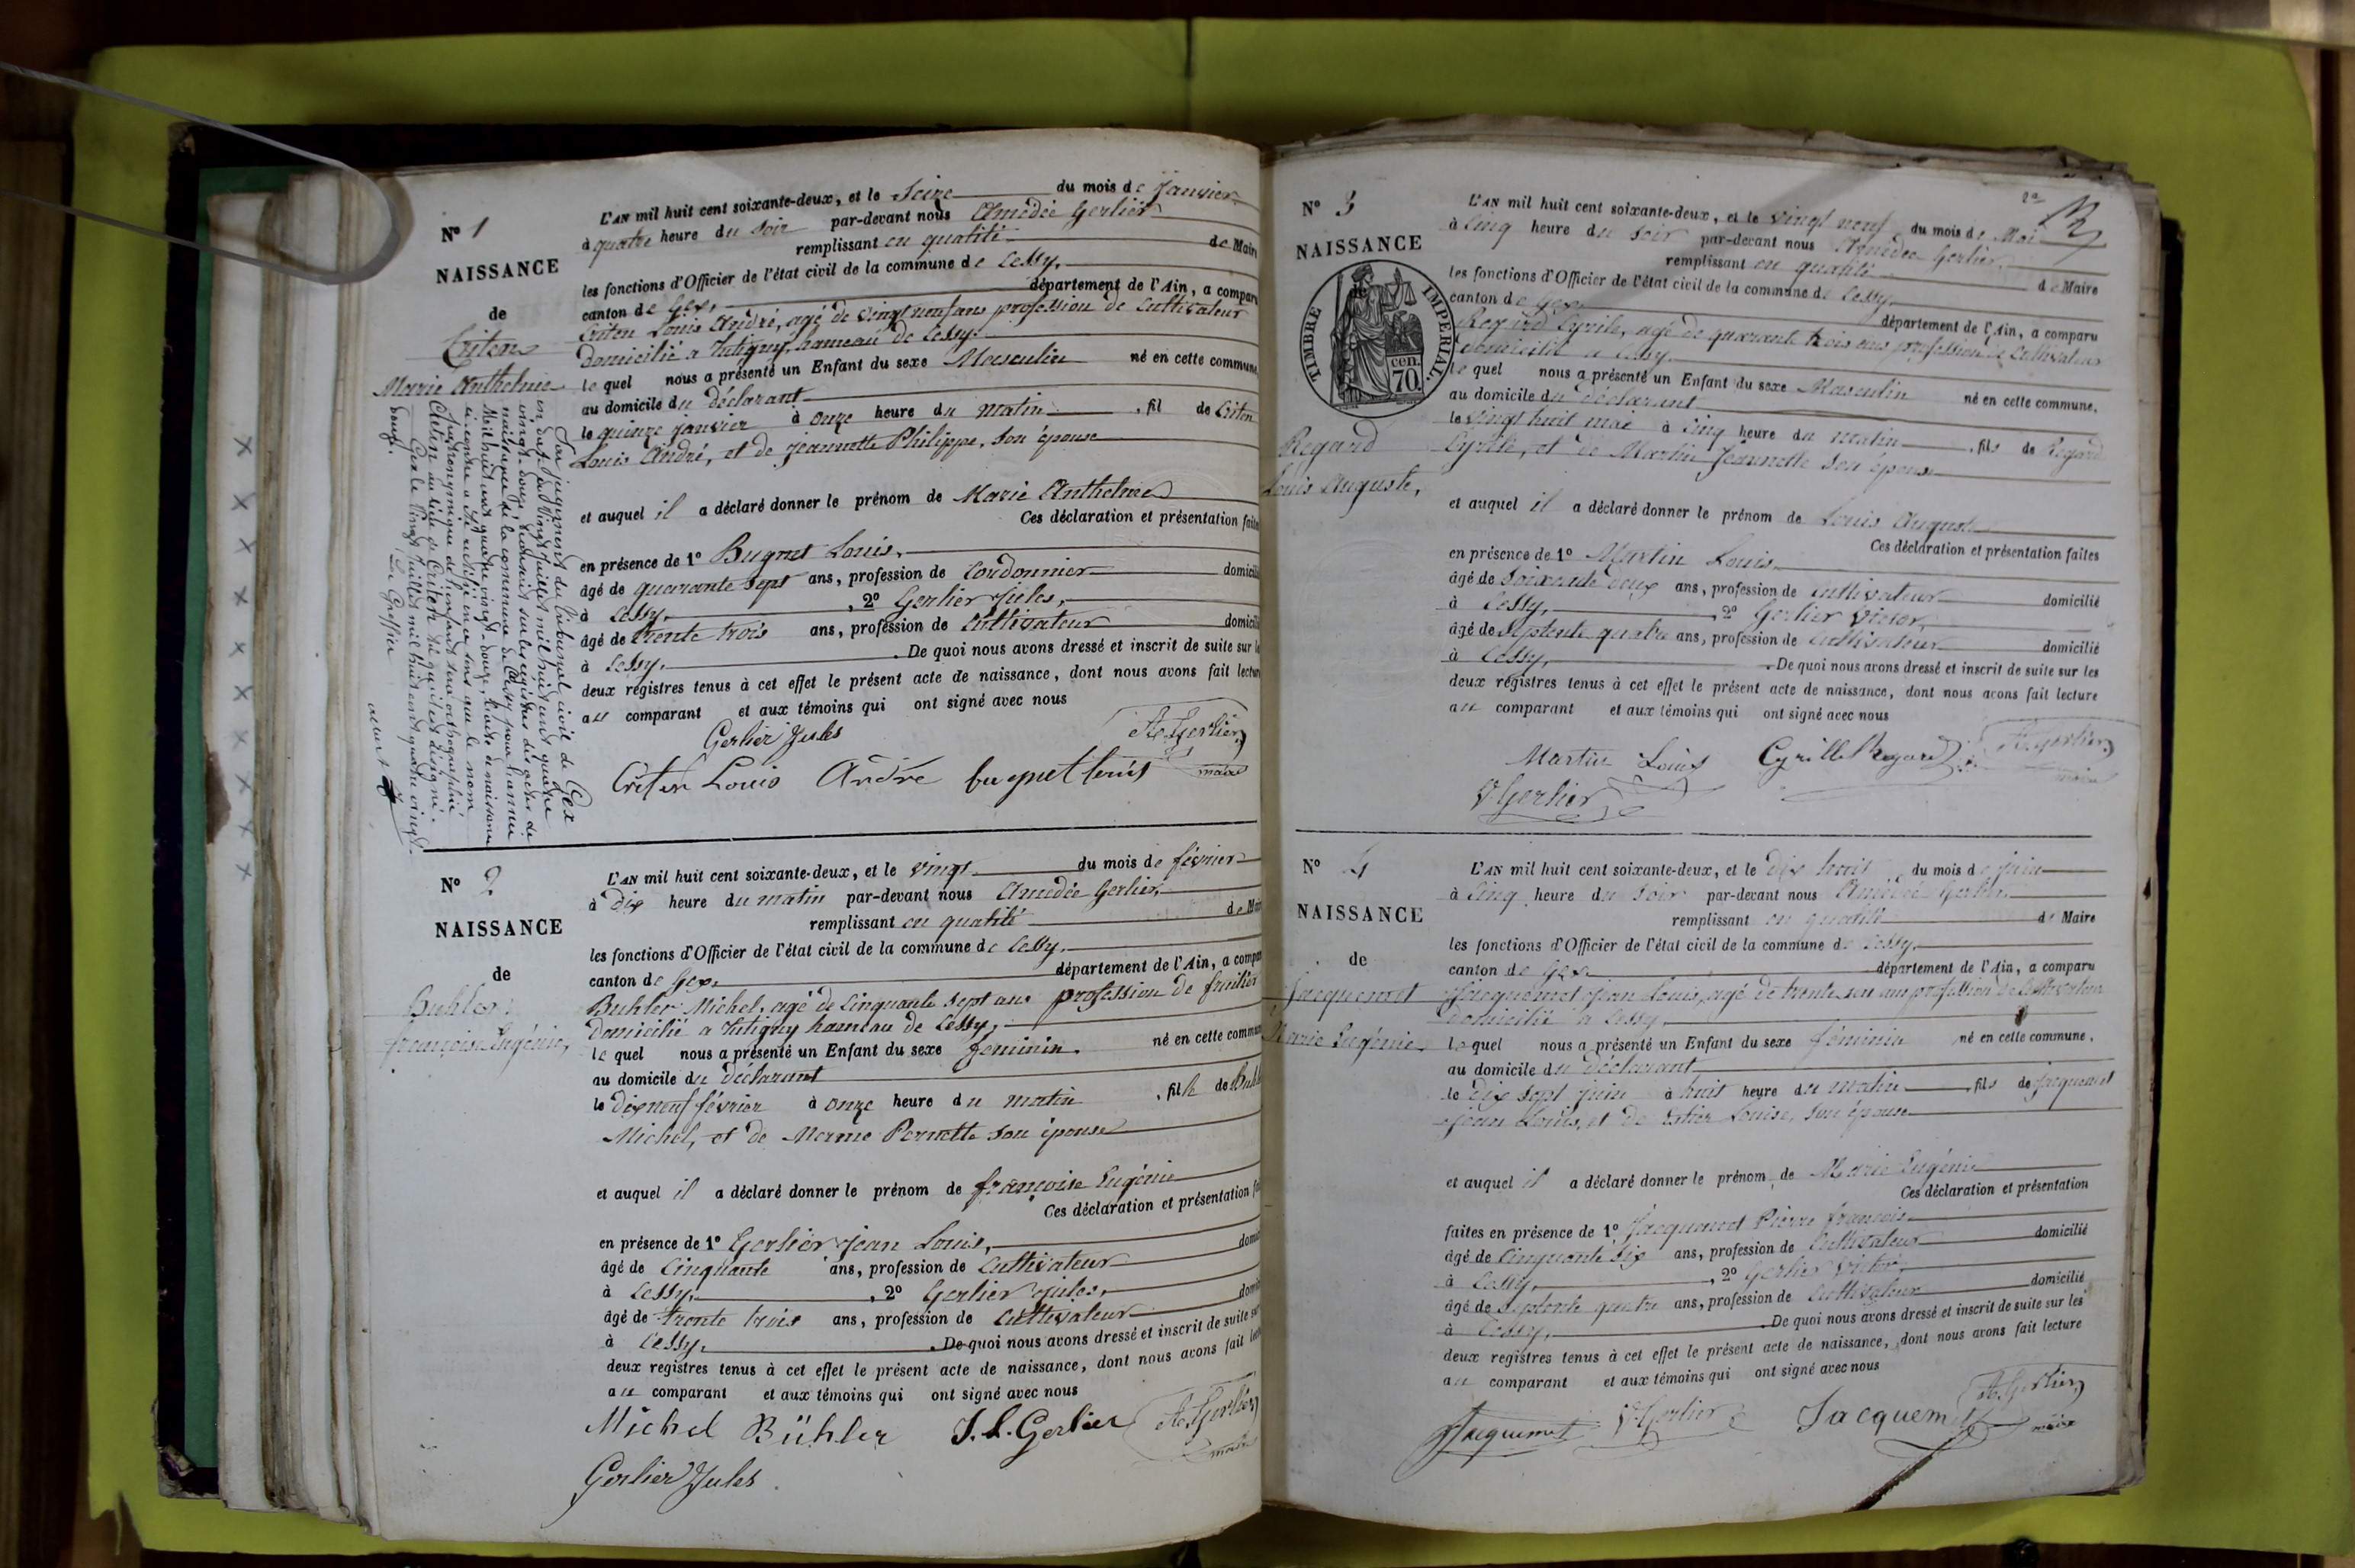 N° 1
NAISSANCE
de
Criten
Marie Anthelme
L'AN mil huit cent soixante-deux, et le Seize du mois de Janvier
à quatre heure du Soir par-devant nous Amédée Gerlier
remplissant en qualité de Maire
les fonctions d'Officier de l'état civil de la commune de Cessy,
canton de Gex, département de l'Ain, a comparu
Criten Louis André, agé de vingt neuf ans profession de Cultivateur
Domicilié a Tutigny, hameau de Cessy.
le quel nous a présenté un Enfant du sexe Masculin né en cette commune,
au domicile du déclarant
le quinze janvier à onze heure du matin , fil de Criten
Louis André, et de Jeannette Philippe, son épouse
et auquel il a déclaré donner le prénom de Marie Anthelme
Ces déclaration et présentation faites
en présence de 1° Bugnet Louis,
âgé de quarante sept ans, profession de Cordonnier domicilié
à Cessy, , 2° Gerlier Jules,
âgé de trente trois ans, profession de Cultivateur domicilié
à Cessy, . De quoi nous avons dressé et inscrit de suite sur les
deux registres tenus à cet effet le présent acte de naissance, dont nous avons fait lecture
au comparant et aux témoins qui ont signé avec nous
Gerlier Jules A. Gerlier
maire
Criten Louis André bugnet louis
Par jugement du Tribunal civil de Gex
en date du Vingt Juillet mil huit cent quatre
vingt-douze, transcrit sur les registres des actes de
naissance de la commune de Cessy pour l'année
Mil huit cent quatre vingt-douze, l'acte de naissance
ci-contre a été rectifié en ce sens que le nom
patronymique de l'enfant sera orthographié
au lieu de Criten
Gex le Vingt Juillet mil huit cent quatre vingt-
douze.
Le Greffier
N° 2
NAISSANCE
de
Buhler
françoise Eugénie,
L'AN mil huit cent soixante-deux, et le vingt du mois de février
à Dix heure du matin par-devant nous Amédée Gerlier,
remplissant en qualité de Maire
les fonctions d'Officier de l'état civil de la commune de Cessy,
canton de Gex, département de l'Ain, a comparu
Buhler Michel, agé de Cinquante sept ans profession de fruitier
Domicilié a Tutigny hameau de Cessy,
le quel nous a présenté un Enfant du sexe féminin. né en cette commune
au domicile du déclarant
le dix neuf février à onze heure du matin , fille de Buhler
Michel, et de Merme Pernette son épouse
et auquel il a déclaré donner le prénom de françoise Eugénie
Ces déclaration et présentation
en présence de 1° Gerlier Jean Louis,
âgé de Cinquante ans, profession de Cultivateur
à Cessy, , 2° Gerlier Jules,
âgé de trente trois ans, profession de Cultivateur
à Cessy, . De quoi nous avons dressé et inscrit de suite sur
deux registres tenus à cet effet le présent acte de naissance, dont nous avons fait
au comparant et aux témoins qui ont signé avec nous
Michel Bühler J. L. Gerlier A. Gerlier
maire
Gerlier Jules
N° 3
NAISSANCE
TIMBRE IMPERIAL.
70 cen.
Regard
Louis Auguste,
L'AN mil huit cent soixante-deux, et le vingt neuf du mois de Mai
à Cinq heure du Soir par-devant nous Amédée Gerlier,
remplissant en qualité de Maire
les fonctions d'Officier de l'état civil de la commune de Cessy
canton de Gex, département de l'Ain, a comparu
Regard Cyrile, agé de quarante trois ans profession de Cultivateur
Domicilié a Cessy
le quel nous a présenté un Enfant du sexe Masculin né en cette commune,
au domicile du déclarant
le vingt huit mai à Cinq heure du matin , fils de Regard
Cyrile, et de Martin Jeannette son épouse
et auquel il a déclaré donner le prénom de Louis Auguste
Ces déclaration et présentation faites
en présence de 1° Martin Louis,
âgé de Soixante deux ans, profession de Cultivateur domicilié
à Cessy, , 2° Gerlier Victor,
âgé de Septente quatre ans, profession de Cultivateur domicilié
à Cessy, . De quoi nous avons dressé et inscrit de suite sur les
deux registres tenus à cet effet le présent acte de naissance, dont nous avons fait lecture
au comparant et aux témoins qui ont signé avec nous
Martin Louis Cyrille Regard A. Gerlier
maire
V Gerlier
N° 4
NAISSANCE
de
Jacquemet
Marie Eugénie
L'AN mil huit cent soixante-deux, et le dix huit du mois de juin
à Cinq heure du Soir par-devant nous Amédée Gerlier
remplissant en qualité de Maire
les fonctions d'Officier de l'état civil de la commune de Cessy,
canton de Gex département de l'Ain, a comparu
Jacquemet Jean Louis, agé de trente six ans profession de Cultivateur
Domicilié a Cessy
le quel nous a présenté un Enfant du sexe féminin né en cette commune,
au domicile du déclarant
le Dix sept juin à huit heure du matin , fils de Jacquemet
Jean Louis, et de Estier Louise, son épouse
et auquel il a déclaré donner le prénom de Marie Eugénie
Ces déclaration et présentation
faites en présence de 1° Jacquemet Pierre françois
âgé de Cinquante Six ans, profession de Cultivateur domicilié
à Cessy, , 2° Gerlier Victor,
âgé de Septente quatre ans, profession de Cultivateur domicilié
à Cessy, . De quoi nous avons dressé et inscrit de suite sur les
deux registres tenus à cet effet le présent acte de naissance, dont nous avons fait lecture
au comparant et aux témoins qui ont signé avec nous
Jacquemet V Gerlier Jacquemet A. Gerlier
maire